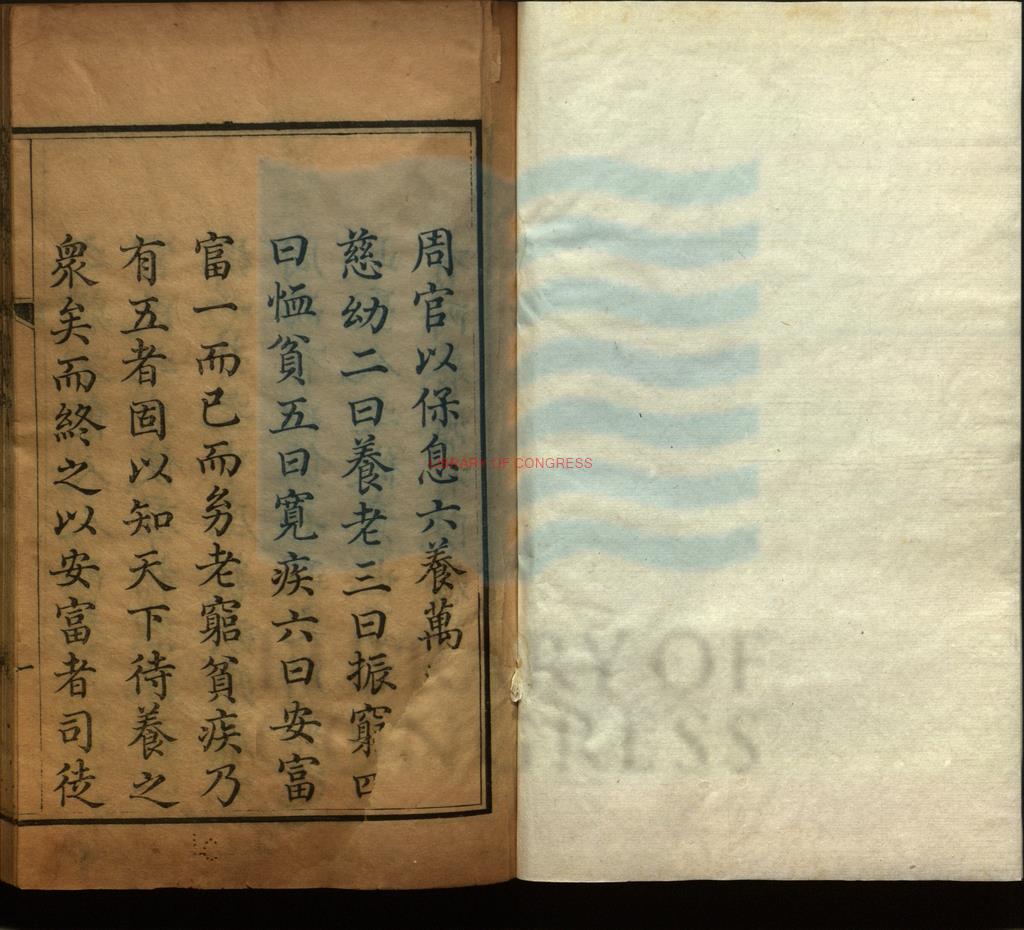 周官以保息六養萬
慈幼二曰養老三曰振窮四
曰恤貧五曰寬疾六曰安富
富一而已而㓜老窮貧疾乃
有五者固以知天下待養之
衆矣而終之以安富者司徒
一
LIBRARY OF CONGRESS